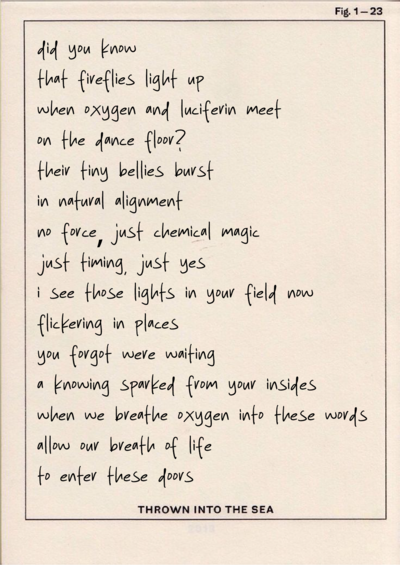 Fig. 1—23
did you know
that fireflies light up
when oxygen and luciferin meet
on the dance floor?
their tiny bellies burst
in natural alignment
no force, just chemical magic
just timing, just yes
i see those lights in your field now
flickering in places
you forgot were waiting
a knowing sparked from your insides
when we breathe oxygen into these words
allow our breath of life
to enter these doors
THROWN INTO THE SEA